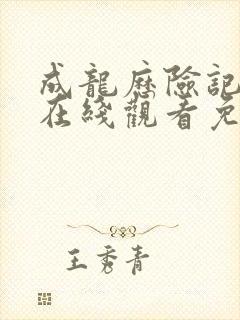 成龍历險記
在綫觀看免
王秀青